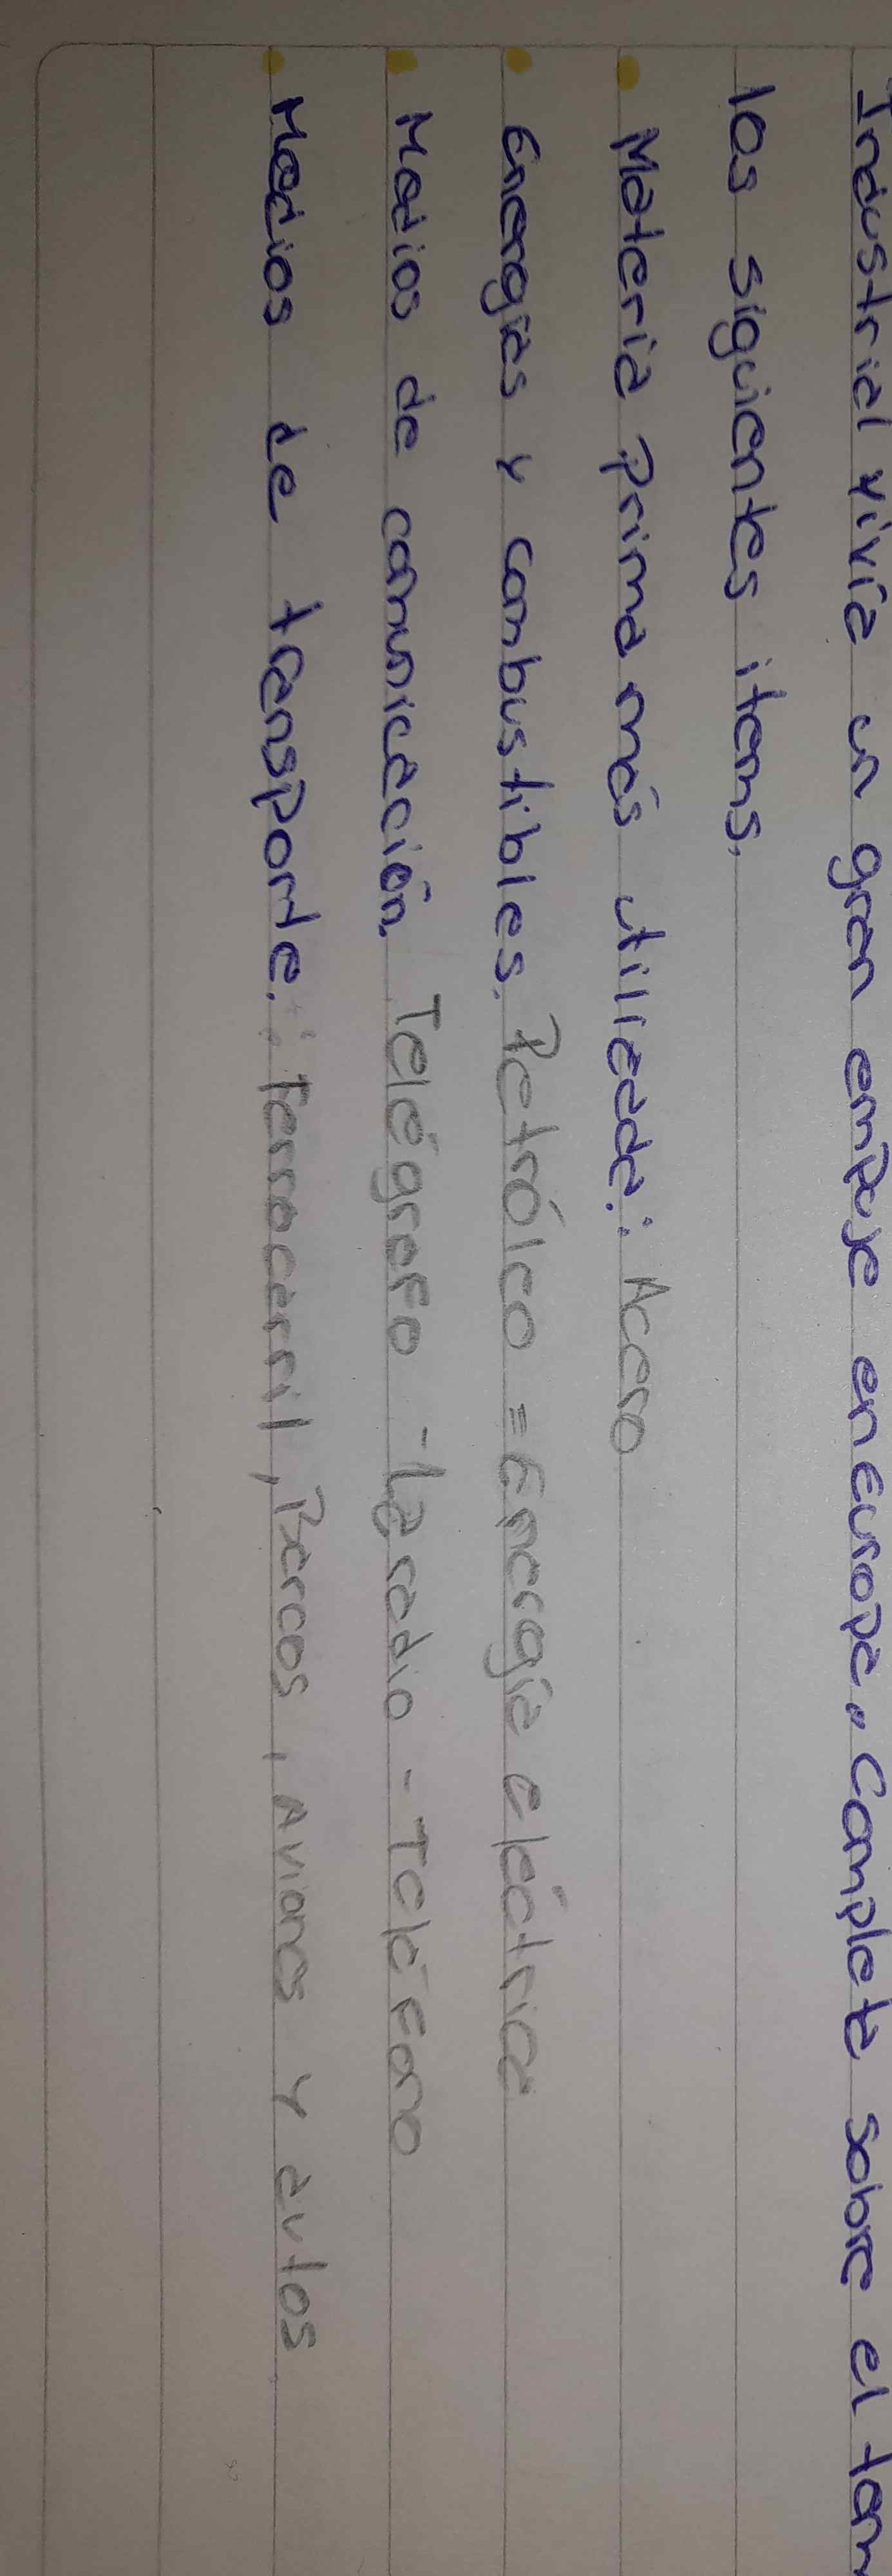 Industrial vivía un gran empuje en Europa. Completa sobre el
los siguientes items.
• Materia Prima más utilizada: Acero
• Energías y combustibles. Petróleo = Energía eléctrica
• Medios de comunicación. Telégrafo - La radio - Teléfono
• Medios de transporte.: Ferrocarril, Barcos, Aviones y autos